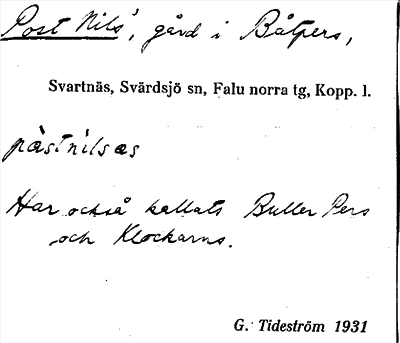 Post Nils', gård i Båtpers,
Svartnäs, Svärdsjö sn, Falu norra tg, Kopp. l.
påstnilsas
Har också kallats Buller Pers
och Klockarns.
G. Tideström 1931